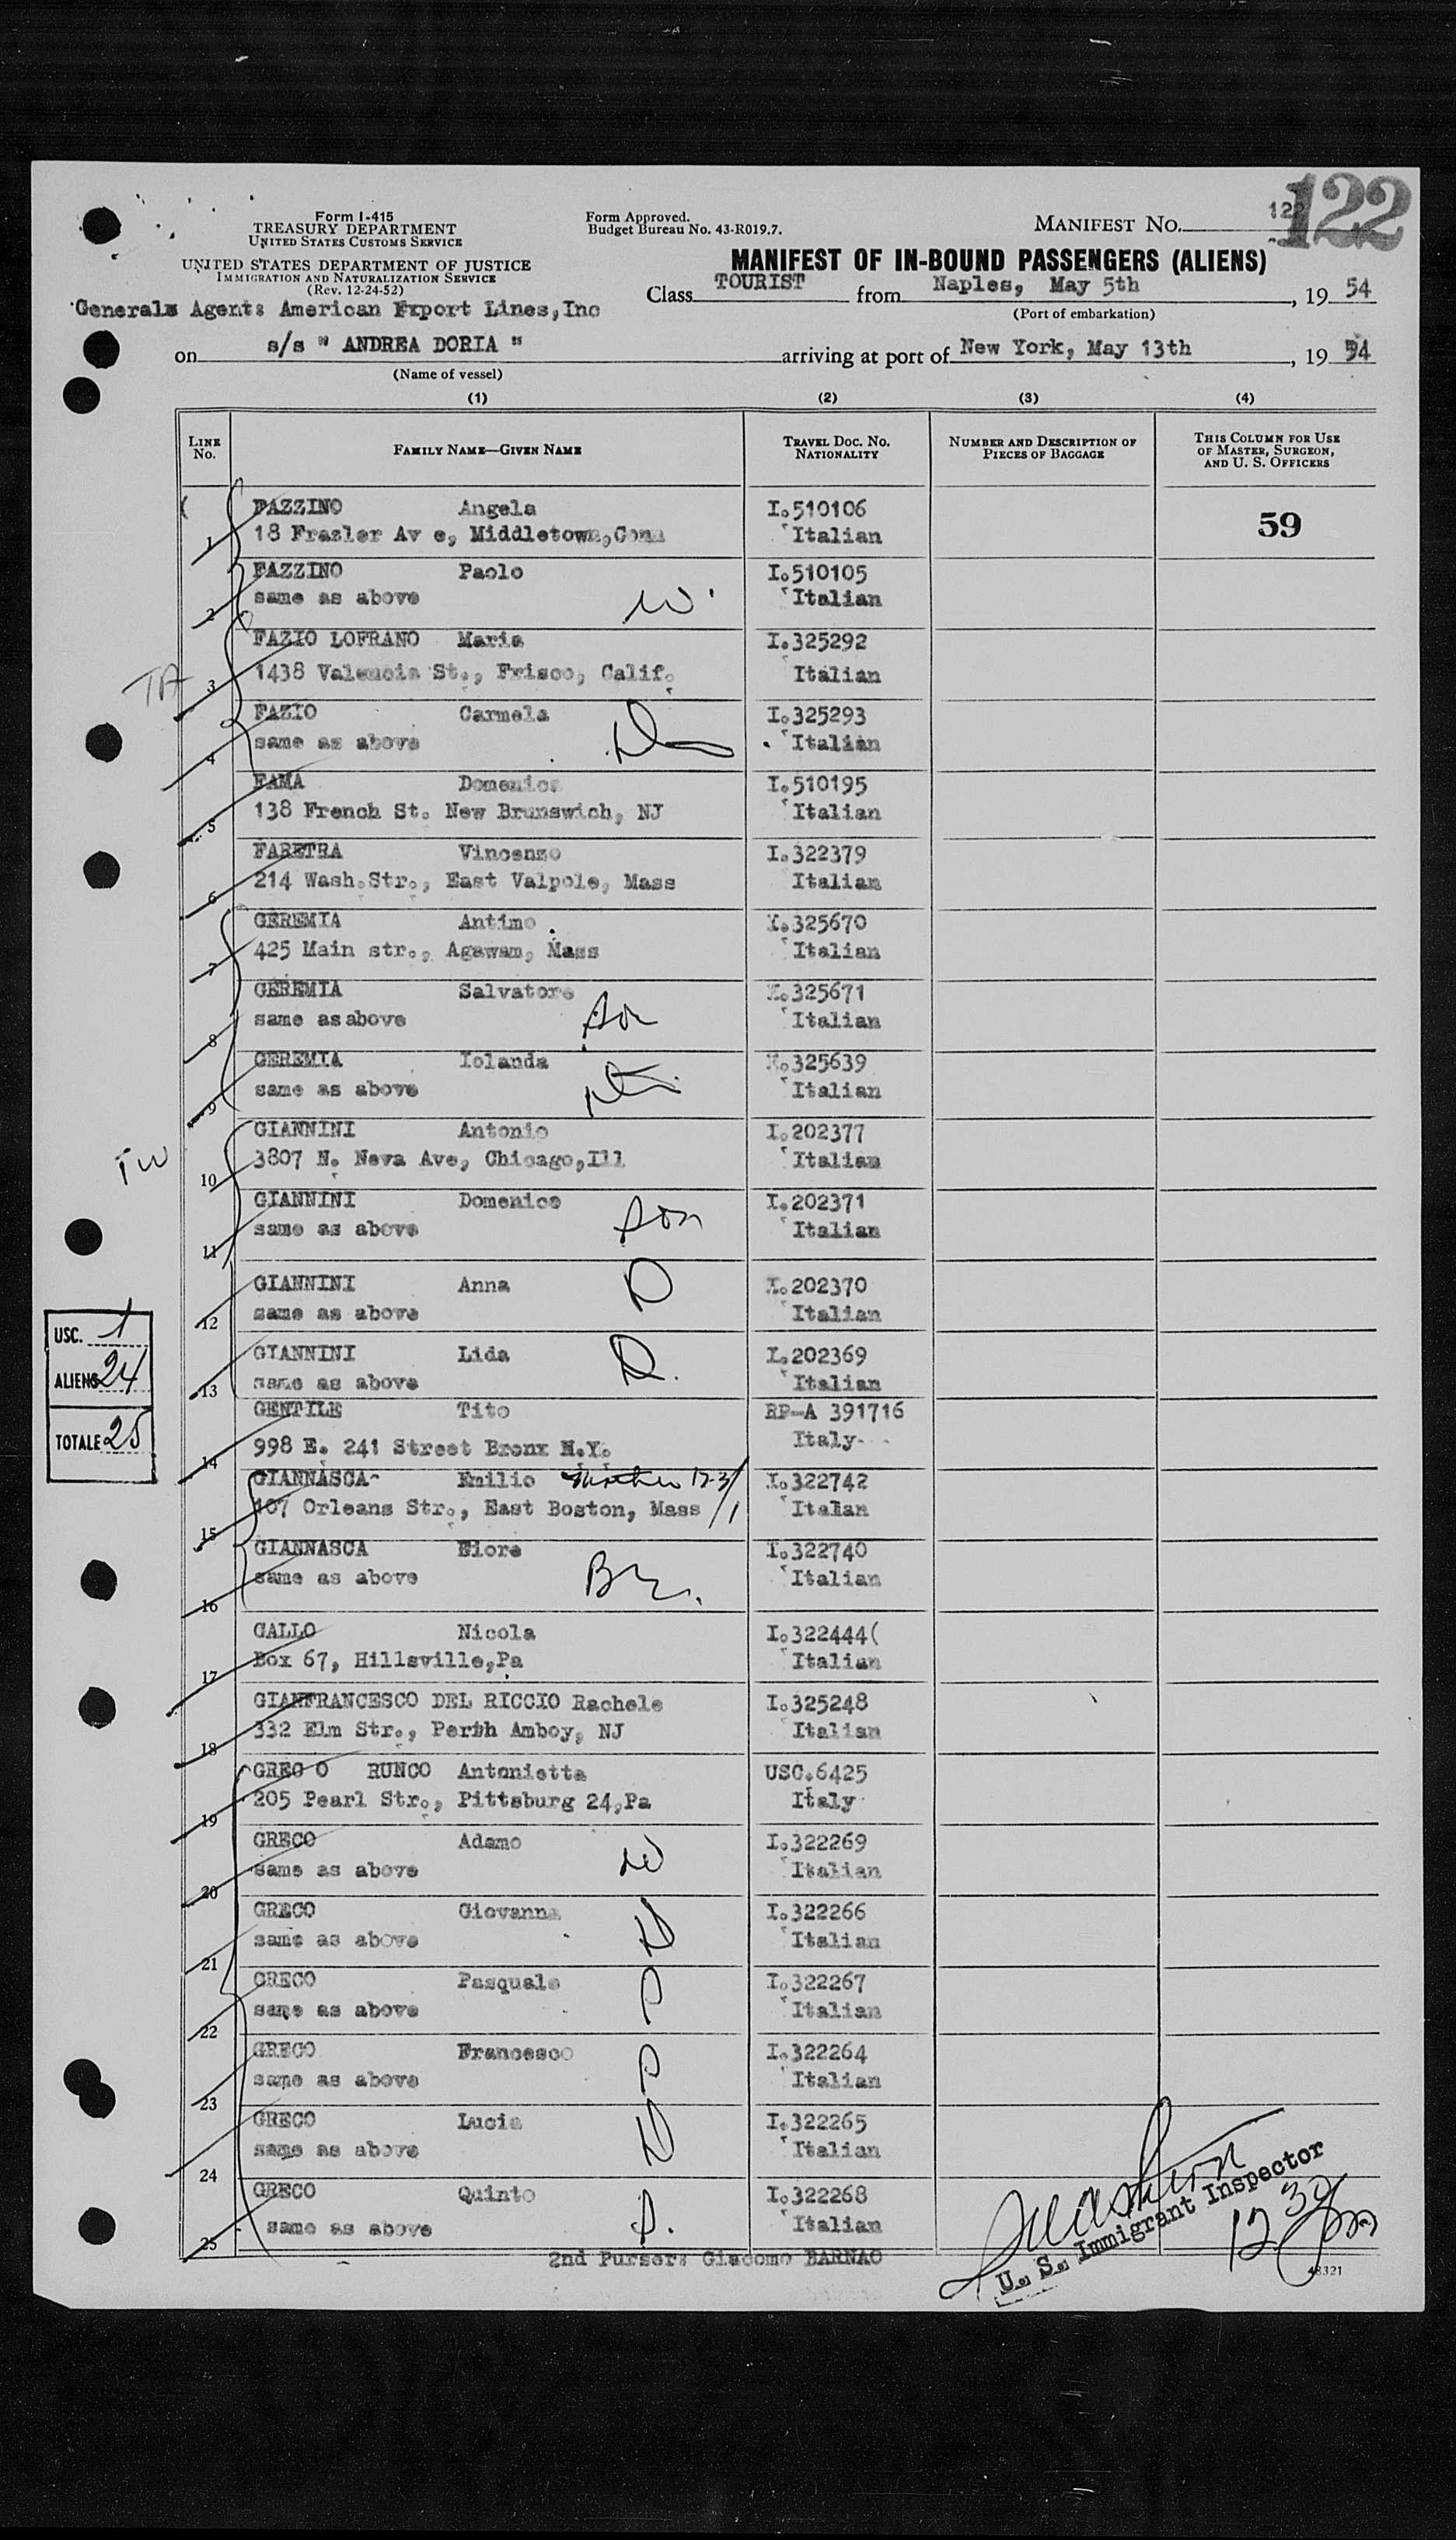 122
Form I-415
TREASURY DEPARTMENT
UNITED STATES CUSTOMS SERVICE
Form Approved.
Budget Bureau No. 43-R019.7.
MANIFEST NO. 122
UNITED STATES DEPARTMENT OF JUSTICE
IMMIGRATION AND NATURALIZATION SERVICE
(Rev. 12-24-52)
MANIFEST OF IN-BOUND PASSENGERS (ALIENS)
Class TOURIST from Naples, May 5th, 19 54
(Port of embarkation)
Generals Agents American Export Lines, Inc
on s/s " ANDREA DORIA " arriving at port of New York, May 13th, 19 54
(Name of vessel)
(1) (2) (3) (4)
LINE No. FAMILY NAME—GIVEN NAME TRAVEL DOC. NO. NATIONALITY NUMBER AND DESCRIPTION OF PIECES OF BAGGAGE THIS COLUMN FOR USE OF MASTER, SURGEON, AND U. S. OFFICERS
FAZZINO Angela I.510106 59
1 18 Frazler Av e, Middletown, Conn Italian
FAZZINO Paolo I.510105
2 same as above W. Italian
FAZIO LOFRANO Maria I.325292
TA 3 1438 Valencia St., Frisco, Calif. Italian
FAZIO Carmela I.325293
4 same as above Italian
FAMA Domenico I.510195
5 138 French St. New Brunswich, NJ Italian
FARETRA Vincenzo I.322379
6 214 Wash.Str., East Valpole, Mass Italian
GEREMIA Antimo I.325670
7 425 Main str., Agawam, Mass Italian
GEREMIA Salvatore I.325671
8 same as above Son Italian
GEREMIA Iolanda 325639
9 same as above Italian
GIANNINI Antonio I.202377
10 3807 N. Neva Ave, Chicago, Ill Italian
GIANNINI Domenico I.202371
11 same as above son Italian
GIANNINI Anna D I.202370
12 same as above Italian
GIANNINI Lida D. I.202369
13 same as above Italian
USC. 1
ALIENS 24
TOTALE 25
GENTILE Tito RP-A 391716
14 998 E. 241 Street Bronx N.Y. Italy
GIANNASCA Emilio I.322742
15 107 Orleans Str., East Boston, Mass Italan
GIANNASCA Fiore I.322740
16 same as above Br. Italian
GALLO Nicola I.322444(
17 Box 67, Hillsville, Pa Italian
GIANFRANCESCO DEL RICCIO Rachele I.325248
18 332 Elm Str., Perth Amboy, NJ Italian
GREC O RUNCO Antonietta USC.6425
19 205 Pearl Str., Pittsburg 24, Pa Italy
GRECO Adamo I.322269
20 same as above Italian
GRECO Giovanna I.322266
21 same as above D Italian
GRECO Pasquale I.322267
22 same as above Italian
GRECO Francesco I.322264
23 same as above Italian
GRECO Lucia I.322265
24 same as above D Italian
GRECO Quinto I.322268
25 same as above Italian
2nd Purser: Giacomo BARNAO
U. S. Immigrant Inspector
48321